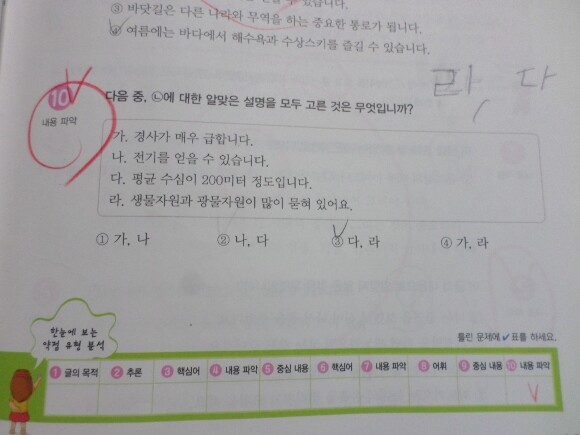 수 있습니다.
③ 바닷길은 다른 나라와 무역을 하는 중요한 통로가 됩니다.
④ 여름에는 바다에서 해수욕과 수상스키를 즐길 수 있습니다.
라, 다
10
내용 파악
다음 중, ㉡에 대한 알맞은 설명을 모두 고른 것은 무엇입니까?
가. 경사가 매우 급합니다.
나. 전기를 얻을 수 있습니다.
다. 평균 수심이 200미터 정도입니다.
라. 생물자원과 광물자원이 많이 묻혀 있어요.
① 가, 나 ② 나, 다 ③ 다, 라 ④ 가, 라
한눈에 보는
약점 유형 분석
틀린 문제에 ✔표를 하세요.
1 글의 목적 2 추론 3 핵심어 4 내용 파악 5 중심 내용 6 핵심어 7 내용 파악 8 어휘 9 중심 내용 10 내용 파악